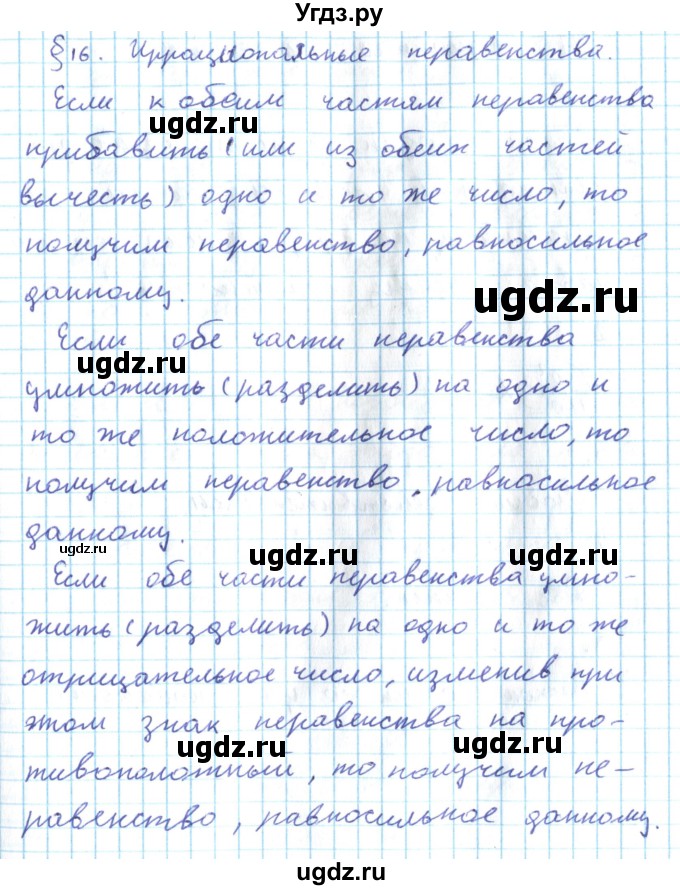 Угдз.ру
§ 16. Иррациональные неравенства.
Если к обеим частям неравенства
ugdz.ru
прибавить (или из обеих частей
ugdz.ru
вычесть) одно и то же число, то
получим неравенство, равносильное
данному.
ugdz.ru
Если обе части неравенства
ugdz.ru
умножить (разделить) на одно и
то же положительное число, то
получим неравенство, равносильное
данному.
ugdz.ru
ugdz.ru
ugdz.ru
Если обе части неравенства умно-
жить (разделить) на одно и то же
отрицательное число, изменив при
этом знак неравенства на про-
ugdz.ru
ugdz.ru
тивоположный, то получим не-
равенство, равносильное данному.